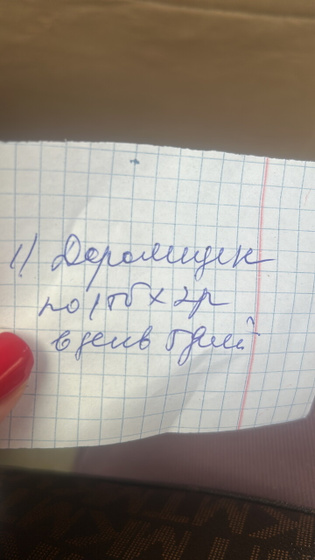 1) Дорамицин
по 1тб х 2р
в день 6 дней